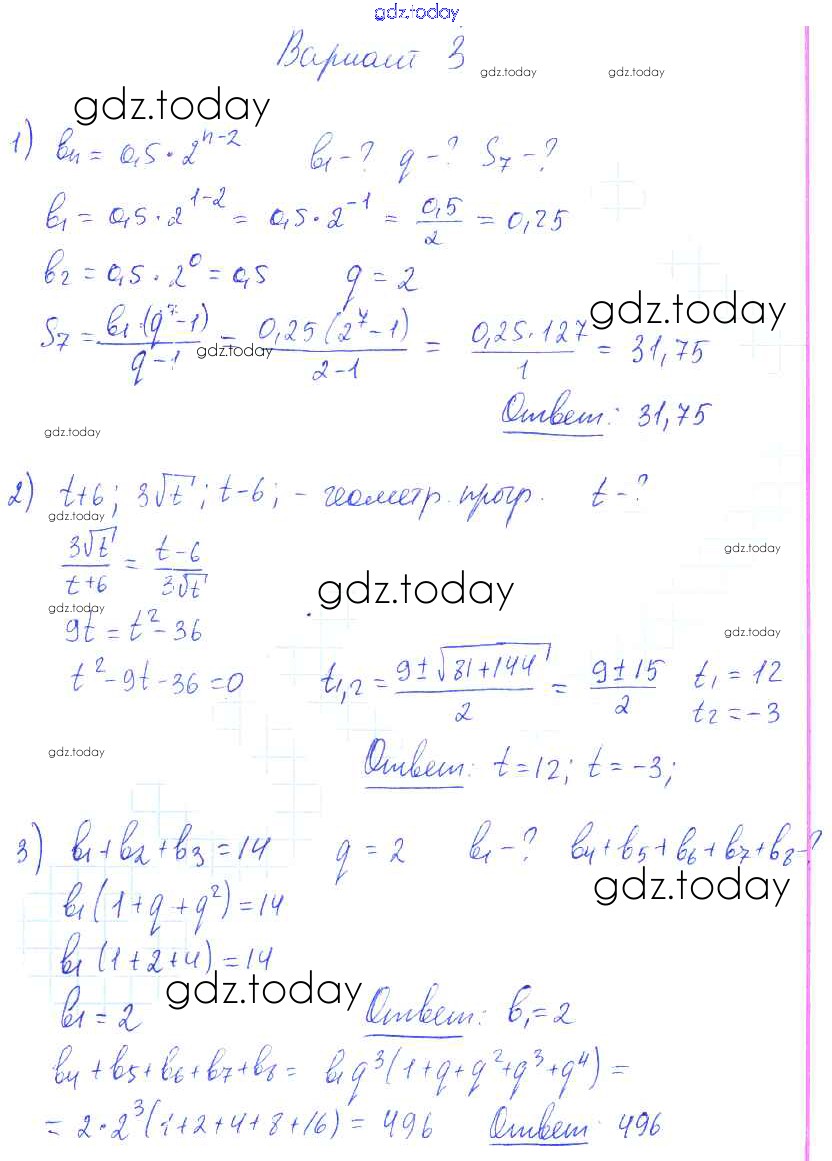 gdz.today
Вариант 3
gdz.today gdz.today
gdz.today
1) bn = 0,5 · 2^(n-2) b1 - ? q - ? S7 - ?
b1 = 0,5 · 2^(1-2) = 0,5 · 2^(-1) = 0,5/2 = 0,25
b2 = 0,5 · 2^0 = 0,5 q = 2
gdz.today
S7 = b1·(q^7-1)/(q-1) = 0,25(2^7-1)/(2-1) = 0,25·127/1 = 31,75
gdz.today
Ответ: 31,75
gdz.today
2) t+6; 3√t; t-6; - геометр. прогр. t - ?
gdz.today
3√t/(t+6) = (t-6)/(3√t)
gdz.today
gdz.today
gdz.today
9t = t²-36
gdz.today
t²-9t-36=0 t1,2 = (9±√(81+144))/2 = (9±15)/2 t1 = 12
t2 = -3
gdz.today
Ответ: t=12; t=-3;
3) b1+b2+b3=14 q = 2 b1 - ? b4+b5+b6+b7+b8-?
gdz.today
b1(1+q+q²)=14
b1(1+2+4)=14
gdz.today
b1 = 2 Ответ: b1=2
b4+b5+b6+b7+b8 = b1q³(1+q+q²+q³+q⁴) =
= 2·2³(1+2+4+8+16) = 496 Ответ: 496